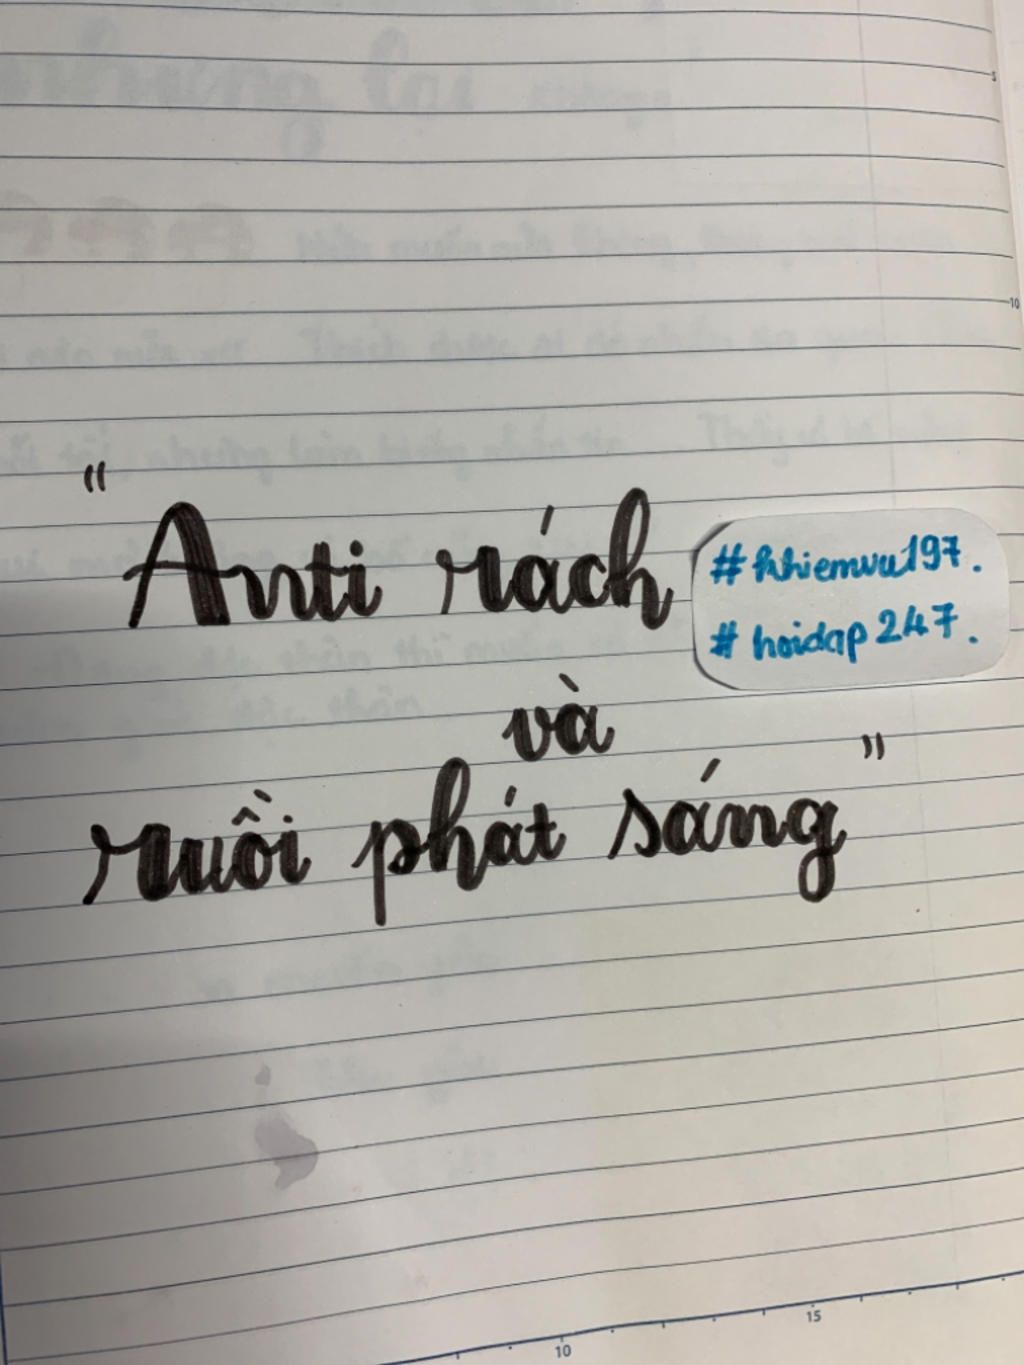 "Anti rách
#nhiemvu197.
#hoidap247.
và
ruồi phát sáng"
5
10
10
15